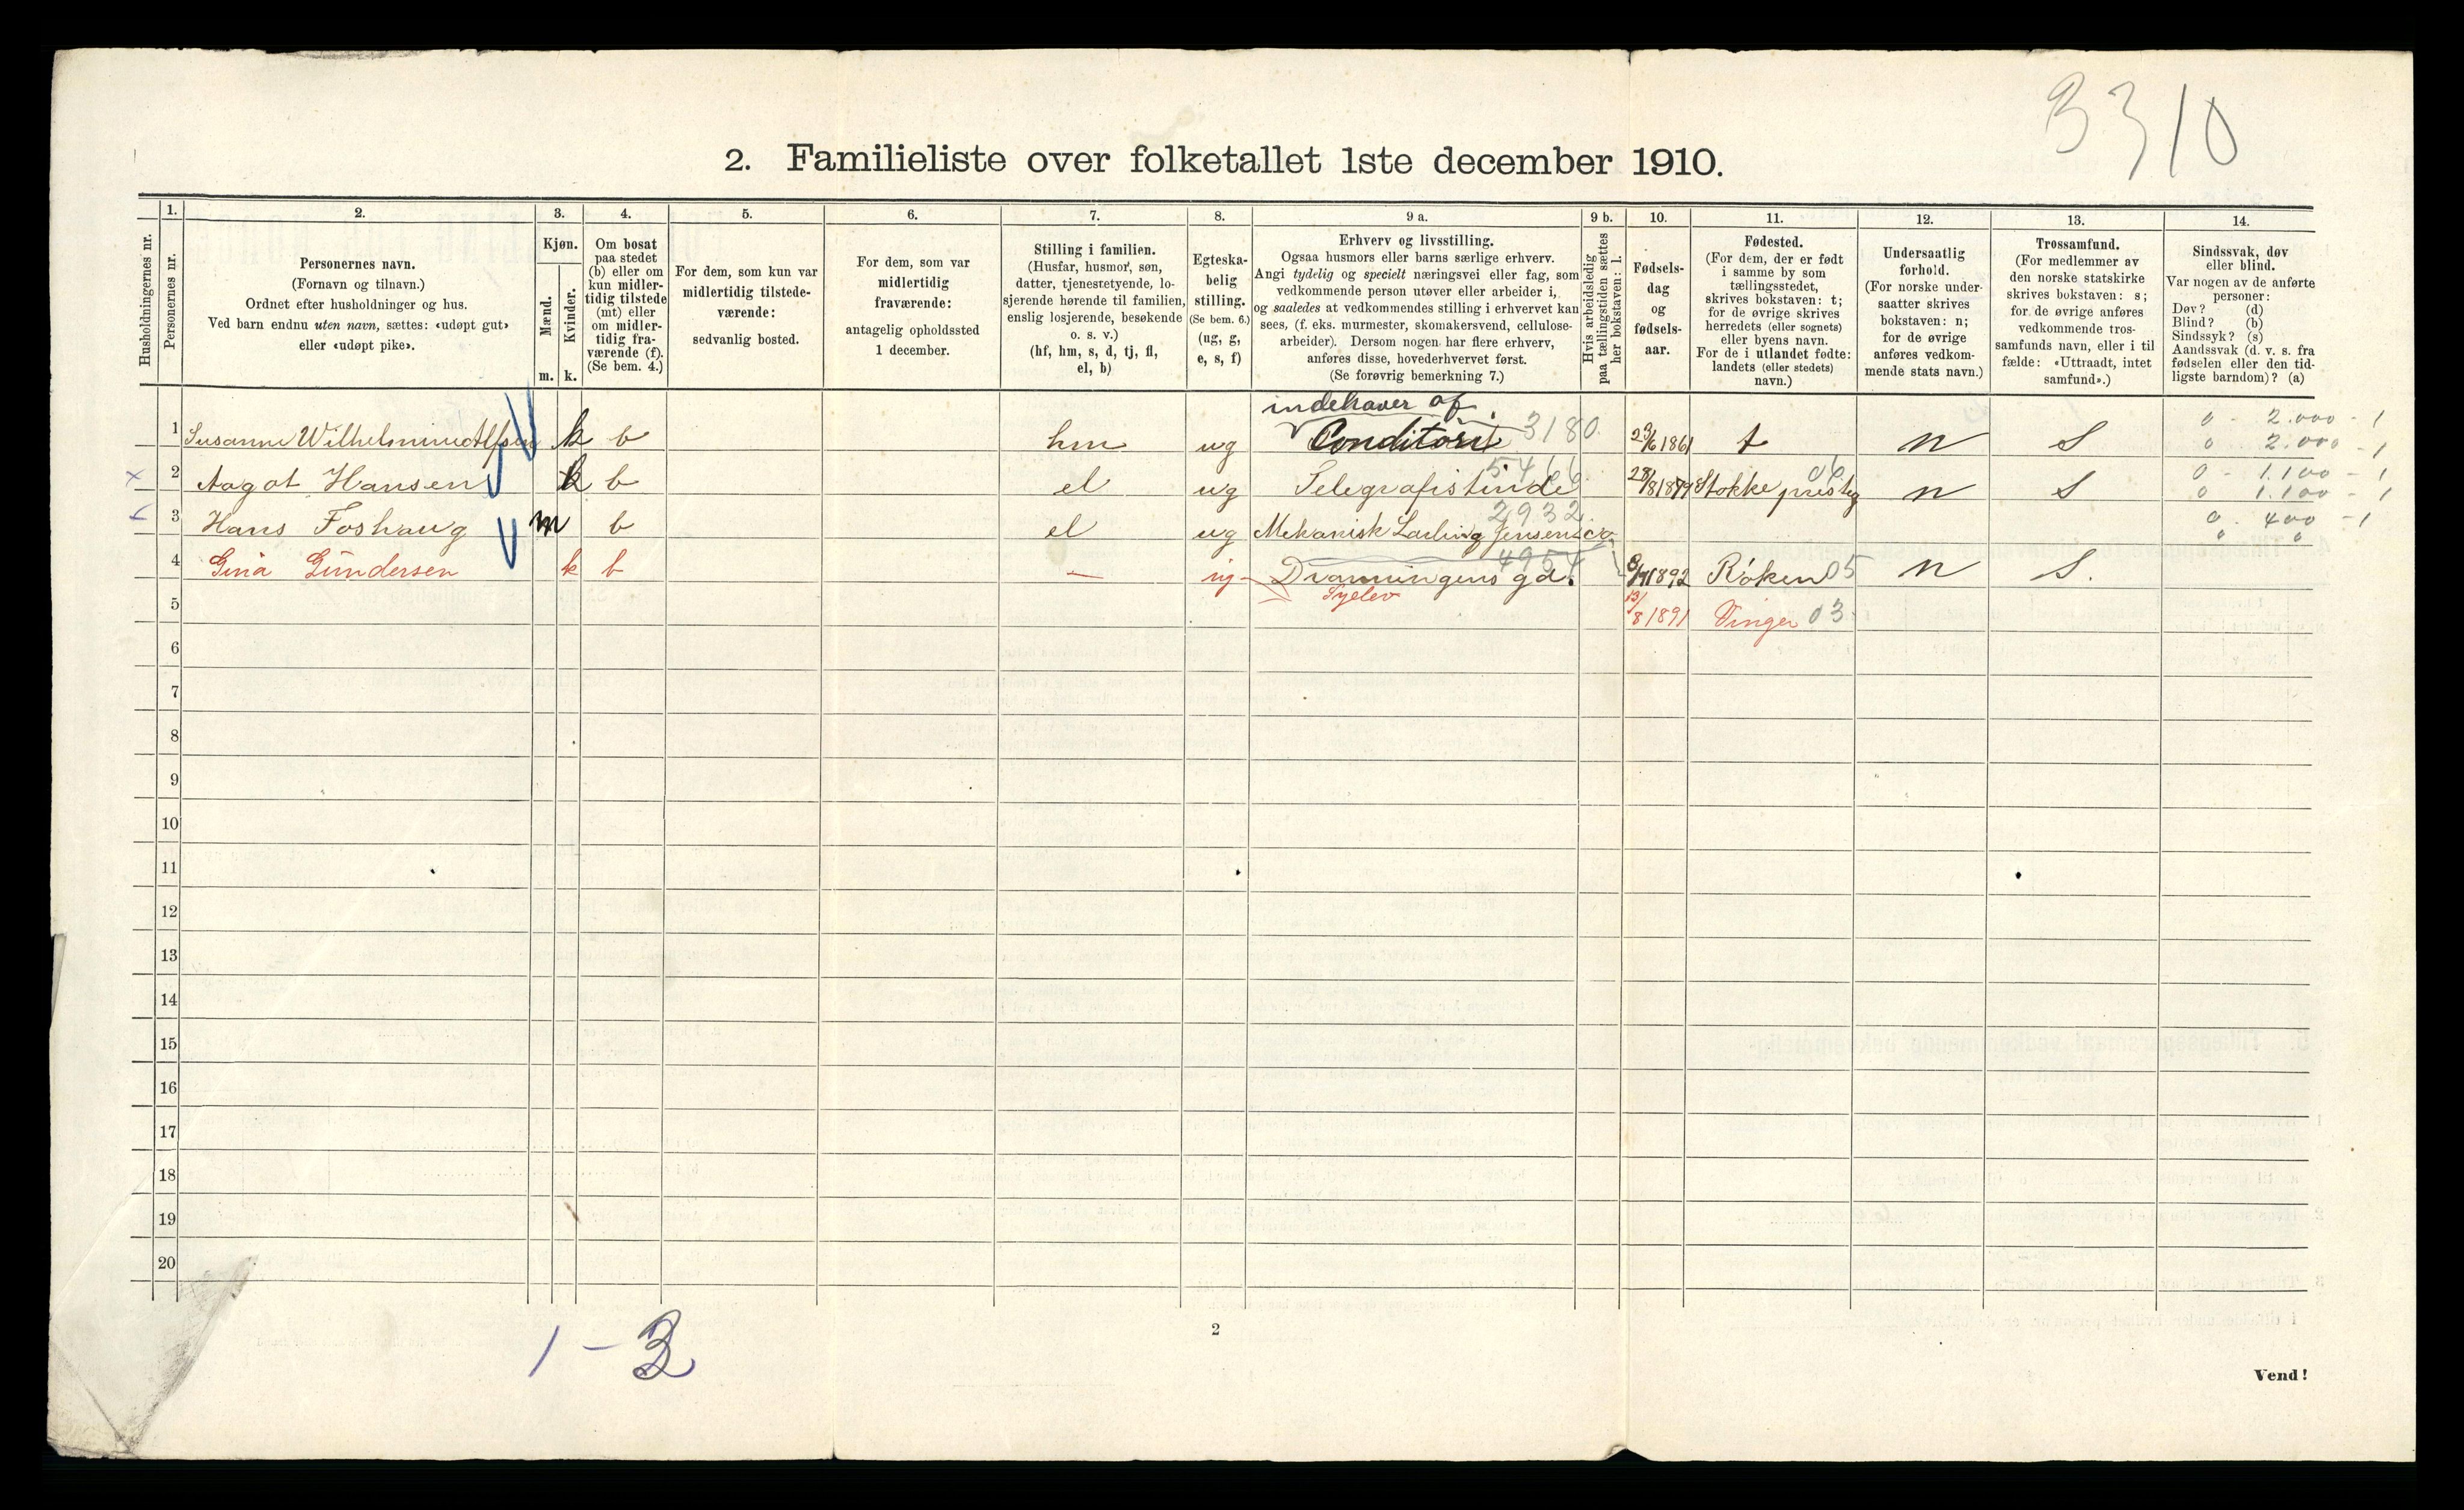 3310
2. Familieliste over folketallet 1ste december 1910.
Husholdningernes nr.
1.
Personernes nr.
2.
Personernes navn.
(Fornavn og tilnavn.)
Ordnet efter husholdninger og hus.
Ved barn endnu uten navn, sættes: «udøpt gut»
eller «udøpt pike».
3.
Kjøn.
Mænd.
Kvinder.
m. k.
4.
Om bosat
paa stedet
(b) eller om
kun midler-
tidig tilstede
(mt) eller
om midler-
tidig fra-
værende (f).
(Se bem. 4.)
5.
For dem, som kun var
midlertidig tilstede-
værende:
sedvanlig bosted.
6.
For dem, som var
midlertidig
fraværende:
antagelig opholdssted
1 december.
7.
Stilling i familien.
(Husfar, husmor, søn,
datter, tjenestetyende, lo-
sjerende hørende til familien,
enslig losjerende, besøkende
o. s. v.)
(hf, hm, s, d, tj, fl,
el, b)
8.
Egteska-
belig
stilling.
(Se bem. 6.)
(ug, g,
e, s, f)
9 a.
Erhverv og livsstilling.
Ogsaa husmors eller barns særlige erhverv.
Angi tydelig og specielt næringsvei eller fag, som
vedkommende person utøver eller arbeider i,
og saaledes at vedkommendes stilling i erhvervet kan
sees, (f. eks. murmester, skomakersvend, cellulose-
arbeider). Dersom nogen har flere erhverv,
anføres disse, hovederhvervet først.
(Se forøvrig bemerkning 7.)
9 b.
Hvis arbeidsledig
paa tællingstiden sættes
her bokstaven: l.
10.
Fødsels-
dag
og
fødsels-
aar.
11.
Fødested.
(For dem, der er født
i samme by som
tællingsstedet,
skrives bokstaven: t;
for de øvrige skrives
herredets (eller sognets)
eller byens navn.
For de i utlandet fødte:
landets (eller stedets)
navn.)
12.
Undersaatlig
forhold.
(For norske under-
saatter skrives
bokstaven: n;
for de øvrige
anføres vedkom-
mende stats navn.)
13.
Trossamfund.
(For medlemmer av
den norske statskirke
skrives bokstaven: s;
for de øvrige anføres
vedkommende tros-
samfunds navn, eller i til
fælde: «Uttraadt, intet
samfund».)
14.
Sindssvak, døv
eller blind.
Var nogen av de anførte
personer:
Døv? (d)
Blind? (b)
Sindssyk? (s)
Aandssvak (d. v. s. fra
fødselen eller den tid-
ligste barndom)? (a)
indehaver af
1 Susanne Wilhelmine Alfsen k b hm ug Conditori 3180. 23/6 1861 t n S
0 - 2.000 - 1
0 2.000 - 1
2 Aagot Hansen k b el ug Telegrafistinde 28/8 1879 Stokke prestg 06 n S
0 - 1.100 - 1
0 1.100 - 1
3 Hans Foshaug m b el ug Mekanisk Lærling Jensen & co 2932
0. 400 - 1
4 Gina Gundersen k b — ug Dronningens gd. 4954 1892 Røken 05 n S.
Syelev
5 13/8 1891 Vinger 03.
6
7
8
9
10
11
12
13
14
15
16
17
18
19
20
1 - 3
2
Vend!